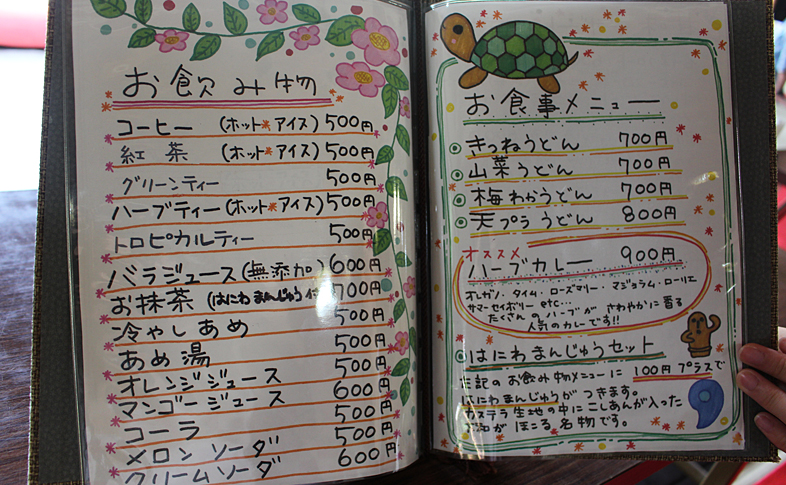 お飲み物
コーヒー (ホット*アイス) 500円
紅茶 (ホット*アイス) 500円
グリーンティー 500円
ハーブティー (ホット*アイス) 500円
トロピカルティー 500円
バラジュース (無添加) 600円
お抹茶 (はにわまんじゅう付) 700円
冷やしあめ 500円
あめ湯 500円
オレンジジュース 500円
マンゴージュース 600円
コーラ 500円
メロンソーダ 500円
クリームソーダ 600円
お食事メニュー
きつねうどん 700円
山菜うどん 700円
梅わかうどん 700円
天プラうどん 800円
オススメ
ハーブカレー 900円
オレガノ・タイム・ローズマリー・マジョラム・ローリエ
サマーセイボリー etc...
たくさんのハーブが さわやかに香る
人気のカレーです!!
はにわまんじゅうセット
記のお飲み物メニューに 100円プラスで
はにわまんじゅうがつきます。
カステラ生地の中にこしあんが入った
がほこる名物です。